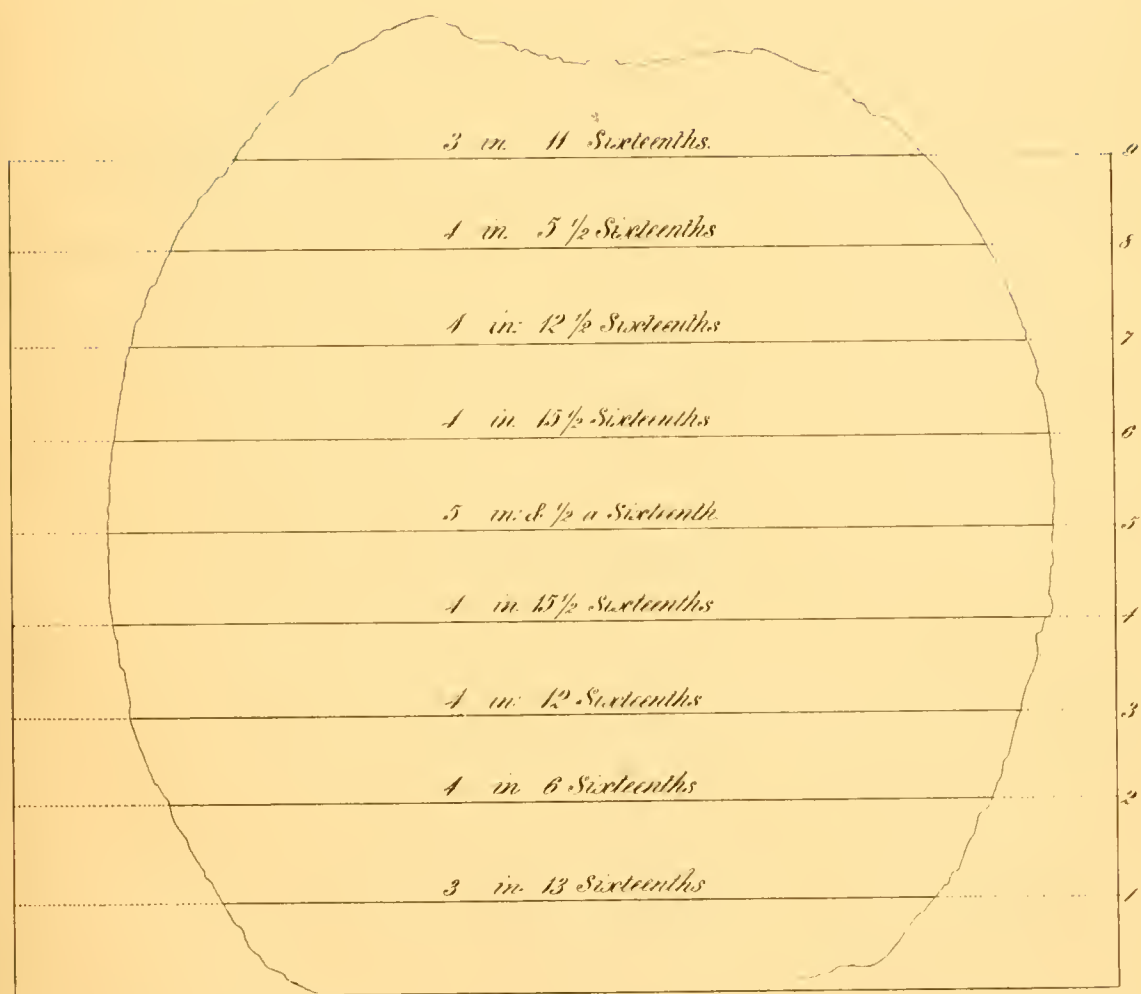 3 in. 11 Sixteenths. 9
4 in. 5 1/2 Sixteenths 8
4 in: 12 1/2 Sixteenths 7
4 in. 15 1/2 Sixteenths 6
5 in: & 1/2 a Sixteenth 5
4 in 15 1/2 Sixteenths 4
4 in: 12 Sixteenths 3
4 in 6 Sixteenths 2
3 in. 13 Sixteenths 1